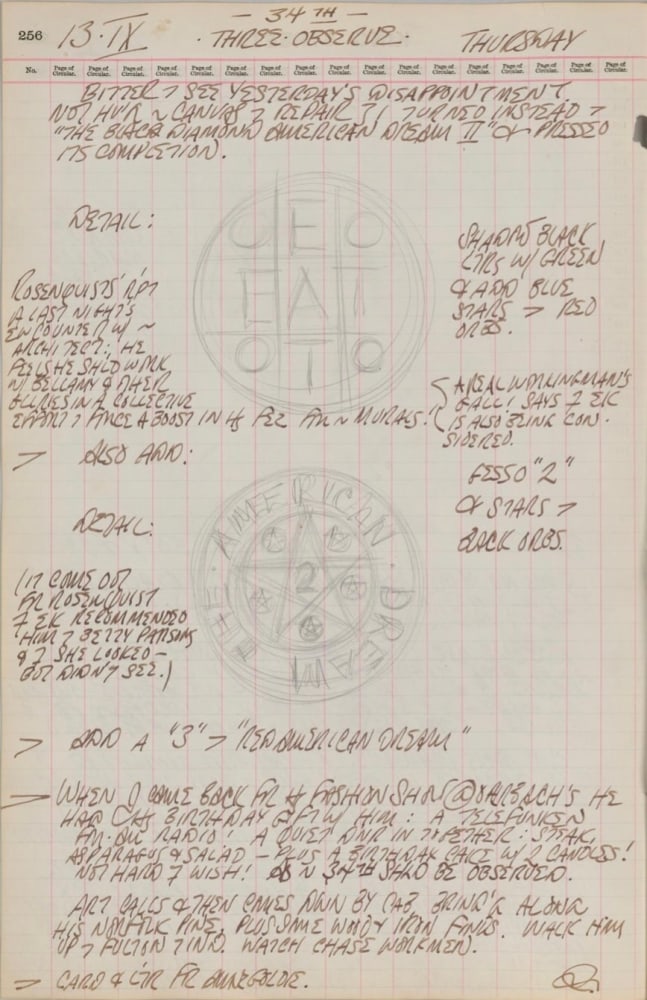 256
13·IX
— 34TH —
· THREE·OBSERVE·
THURSDAY
No.
Page of Circular. Page of Circular. Page of Circular. Page of Circular. Page of Circular. Page of Circular. Page of Circular. Page of Circular. Page of Circular. Page of Circular. Page of Circular. Page of Circular. Page of Circular. Page of Circular. Page of Circular. Page of Circular. Page of Circular.
SEE YESTERDAY'S DISAPPOINTMENT.
CANVAS REPAIR I TURNED INSTEAD
"THE BLACK DIAMOND AMERICAN DREAM II" & PRESSED
ITS COMPLETION.
DETAIL:
E
E A T
I
SHARPND BLACK
LTRS W/ GREEN
& ADD BLUE
STARS > RED
ORBS.
ROSENQUIST'S RPT
LAST NIGHT'S
ENCOUNTER W/ ~
ARCHITECT: HE
FEELS HE SHLD WORK
W/ BELLAMY & OTHER
IN A COLLECTIVE
EFFORT FORCE A BOOST IN FEE FR ~ MURALS!
A REAL WORKINGMAN'S
GALL! SAYS EK
IS ALSO BEING CON-
SIDERED.
> ALSO ADD:
GESSO "2"
& STARS >
BACK ORBS.
DETAIL:
THE · AMERICAN · DREAM
2
(IT CAME OUT
FR ROSENQUIST
EK RECOMMENDED
HIM BETTY PARSONS
& SHE LOOKED —
BUT DIDN'T SEE.)
> ADD A "3" > "RED AMERICAN DREAM"
> WHEN I COME BACK FR FASHION SHOW @ OHRBACH'S HE
HAD BIRTHDAY GIFT W/ HIM: A TELEFUNKEN
FM·AM RADIO! A QUIET DNR IN TOGETHER: STEAK,
ASPARAGUS & SALAD — PLUS A BIRTHDAY CAKE W/ 2 CANDLES!
NOT HARD WISH! 34TH SHLD BE OBSERVED.
ART CALLS & THEN COMES DWN BY CAB, BRING'G ALONG
HIS NORFOLK PINE, PLUS SOME WOODY IRON FINDS. WALK HIM
UP > FULTON IND. WATCH CHASE WORKMEN.
> CARD & LTR FR